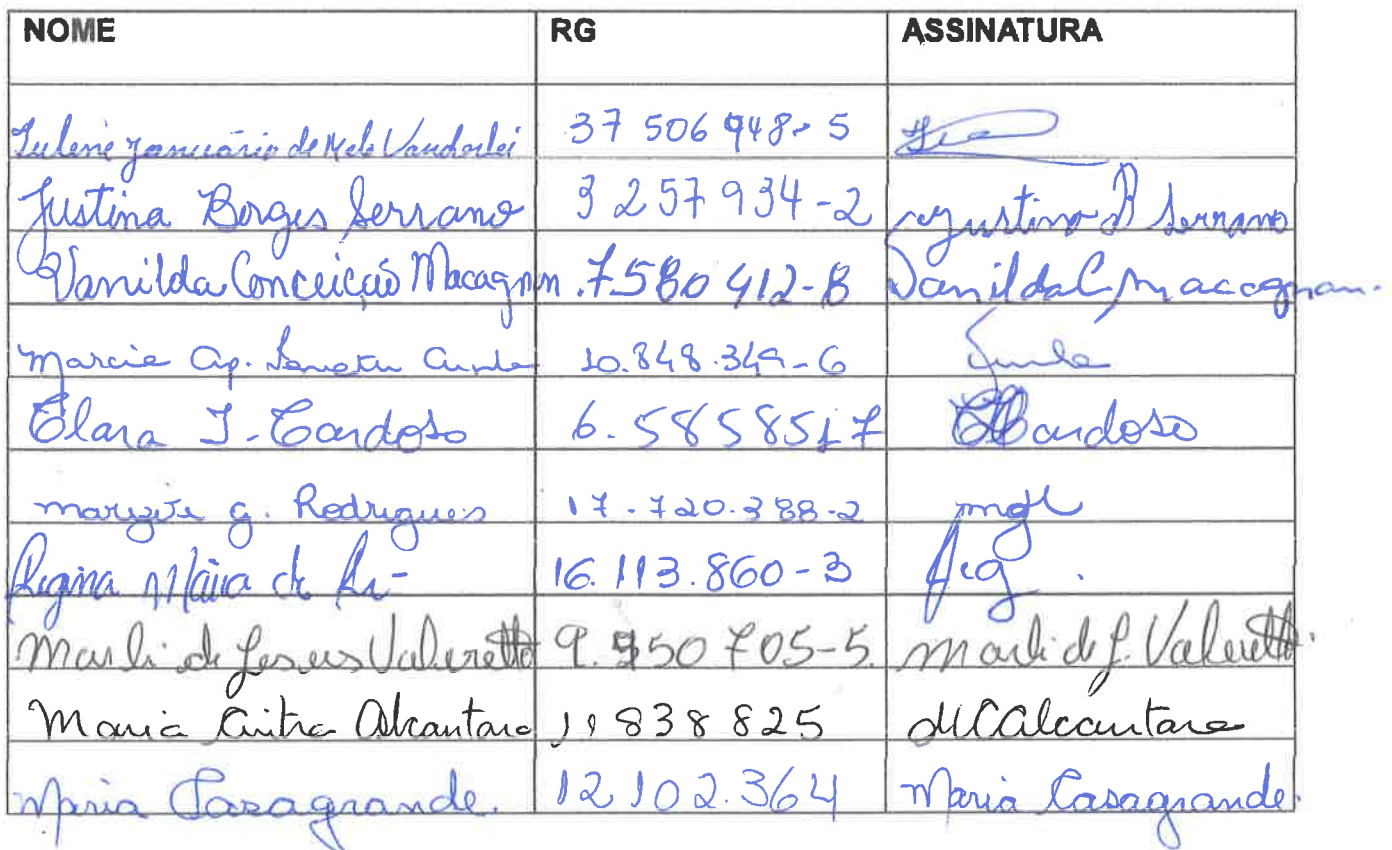 NOME RG ASSINATURA
Januário de Melo Vanderlei 37 506 948-5
Justina Borges Serrano 3 257 934-2 Justina B Serrano
Vanilda Conceição Macagnan .7580 412-8 Vanilda C Macagnan.
Marcia Ap. Cunha 10.848.349-6
Clara I. Cardoso 6.5858517 Cardoso
g. Rodrigues 17.720.388-2
Regina Maria de 16.113.860-3 Reg
Marli de Jesus Valeretto 9.950705-5. Marli de J. Valeretto.
Maria Alcantara 11 838 825 MCAlcantara
Maria Casagrande. 12 102.364 Maria Casagrande.